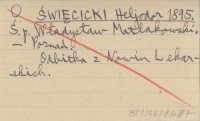 O ŚWIĘCICKI Heljodor 1895.
Ś.p. Władysław Matlakowski.
— Poznań.
Odbitka z Nowin Lekar-
skich.